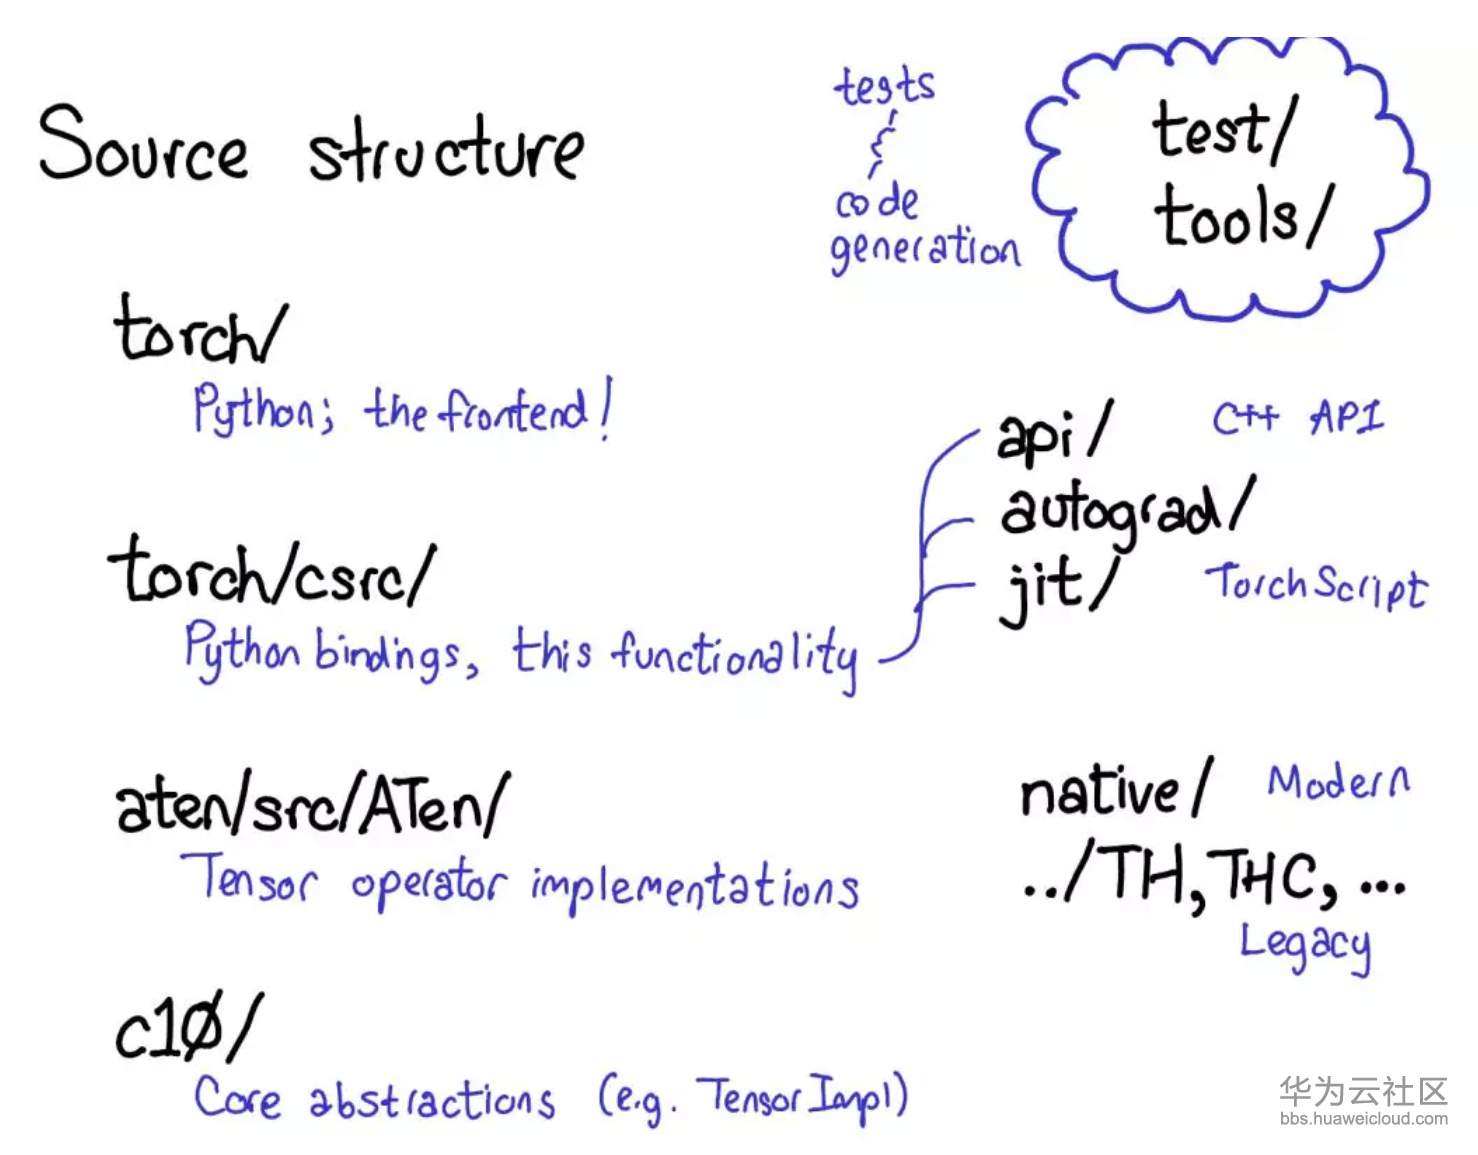 Source structure
tests
code
generation
test/
tools/
torch/
Python; the frontend!
torch/csrc/
Python bindings, this functionality
api/ C++ API
autograd/
jit/ TorchScript
aten/src/ATen/
Tensor operator implementations
native/ Modern
../TH, THC, ...
Legacy
c10/
Core abstractions (e.g. TensorImpl)
华为云社区
bbs.huaweicloud.com